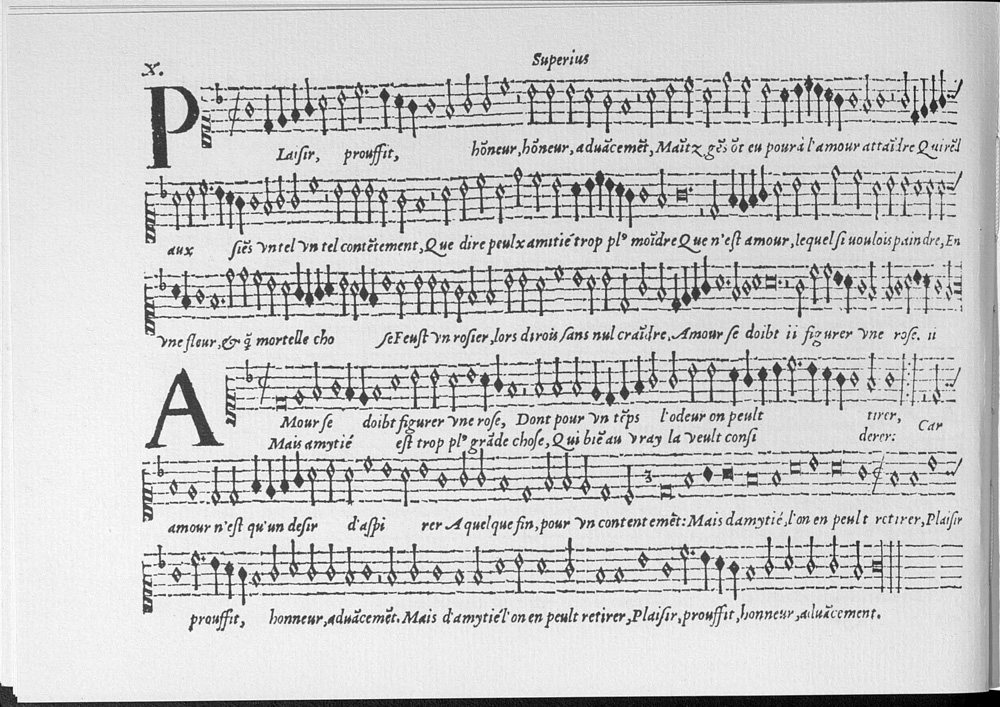 X.
Superius
PLaisir, prouffit, hõneur, hõneur, aduãcemẽt, Maĩtz gẽs õt eu pour à l'amour attaĩdre Qui rẽd
aux siẽs vn tel vn tel contẽtement, Que dire peulx amitié trop plꝰ moĩdre Que n'est amour, lequel si uoulois paindre, En
vne fleur, & q̃ mortelle cho se Feust vn rosier, lors dirois sans nul craĩdre, Amour se doibt ii figurer vne rose. ii
AMour se doibt figurer vne rose, Dont pour vn tẽps l'odeur on peult tirer, Car
Mais amytié est trop plꝰ grãde chose, Qui biẽ au vray la veult consi derer:
amour n'est qu'un desir d'aspi rer A quelque fin, pour vn contentemẽt: Mais damytié, l'on en peult retirer, Plaisir
prouffit, honneur, aduãcemẽt. Mais d'amytié l'on en peult retirer, Plaisir, prouffit, honneur, aduãcement.